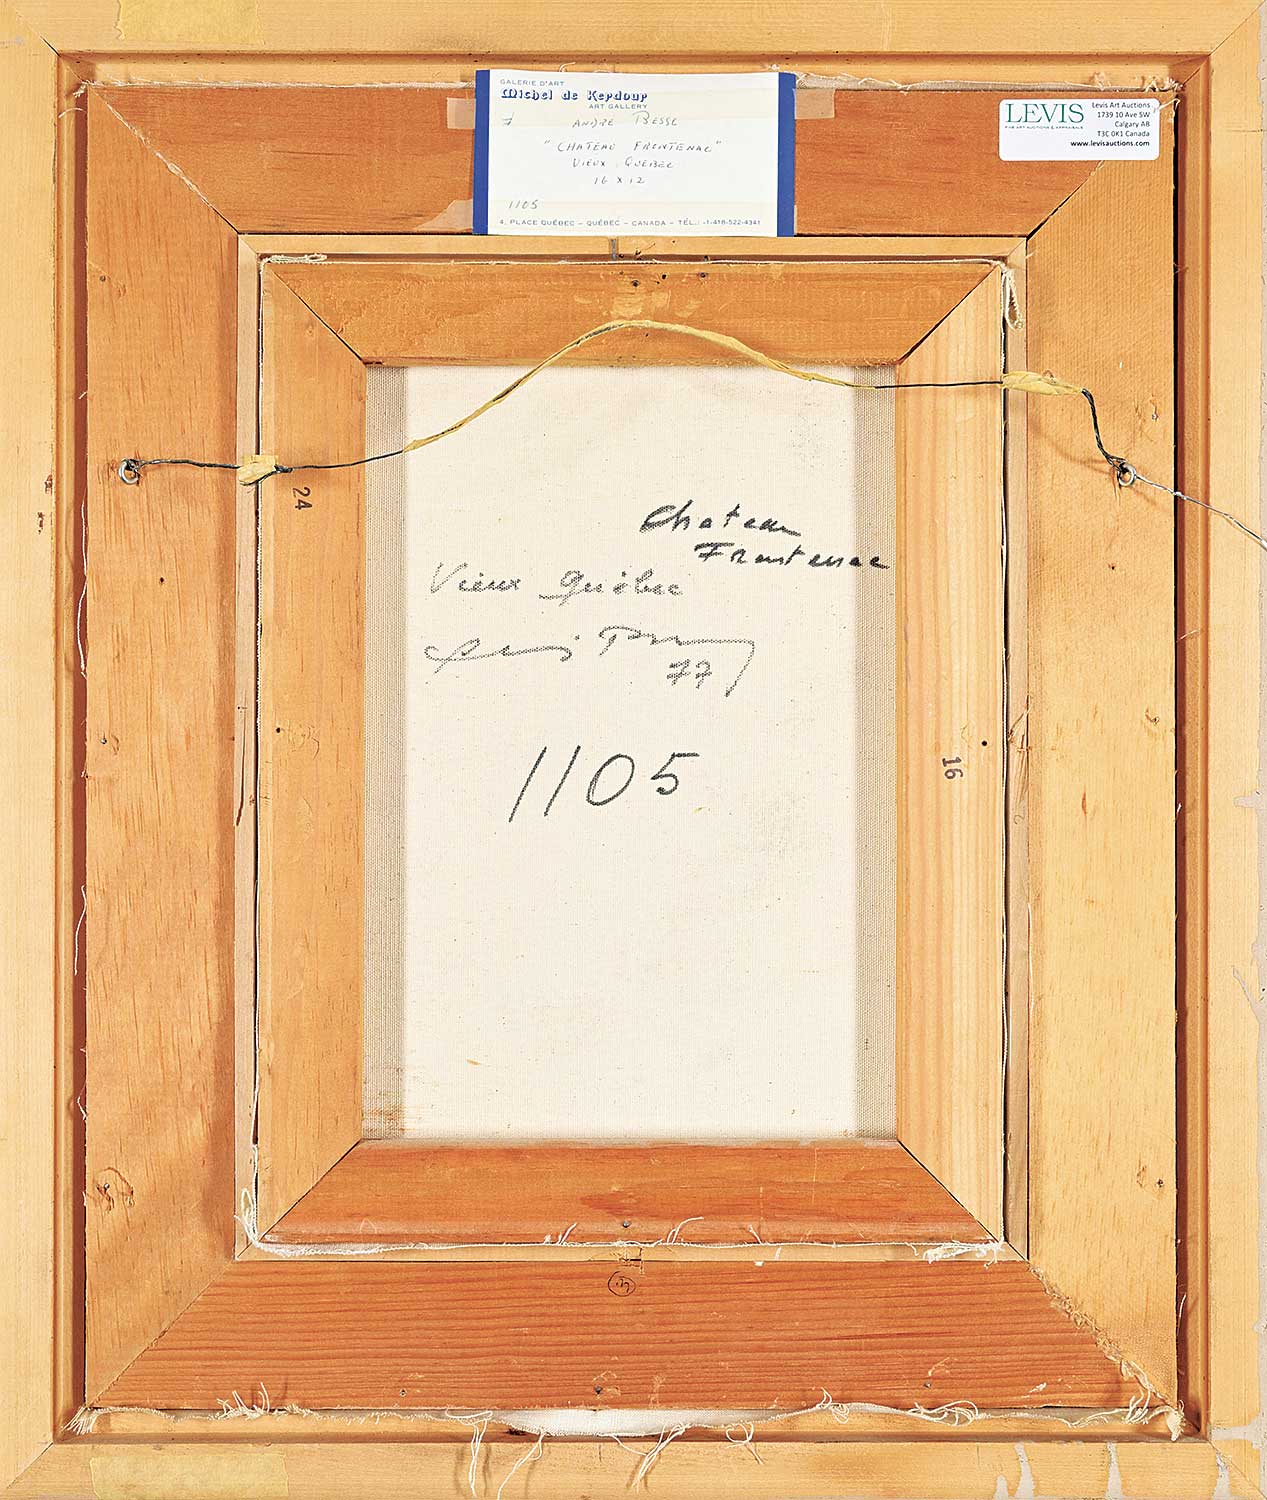 GALERIE D'ART
Michel de Kerdour
ART GALLERY
7
ANDRE BESSE
"CHATEAU FRONTENAC"
VIEUX QUEBEC
16 x 12
1105
4, PLACE QUÉBEC – QUÉBEC – CANADA – TÉL.: -1-418-522-4341
LEVIS
FINE ART AUCTIONS & APPRAISALS
Levis Art Auctions
1739 10 Ave SW
Calgary AB
T3C 0K1 Canada
www.levisauctions.com
24
Chateau
Frontenac
Vieux Québec
77
1105
16